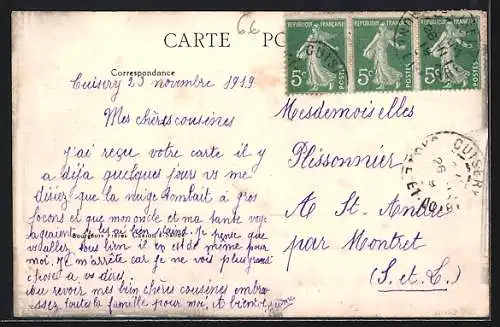 66
CARTE PO
Correspondance
Cuisery 25 novembre 1919
Mes chères cousines
J'ai reçue votre carte il y
a déja quelques jours vs me
disiez que la neige tombait à gros
flocons et que mon oncle et ma tante
Je pense que
vs allez tous bien il en est de même pour
moi. Je m'arrête car je ne vois plus grand
chose à vs dire.
Au revoir mes bien chères cousines embra-
-ssez toute la famille pour moi. A bientôt
REPUBLIQUE FRANÇAISE
5c
POSTES
REPUBLIQUE FRANÇAISE
5c
POSTES
REPUBLIQUE FRANÇAISE
5c
POSTES
CUISERY
26
Mesdemoiselles
Plissonnier
A St. André
par Montret
(S. et L.)